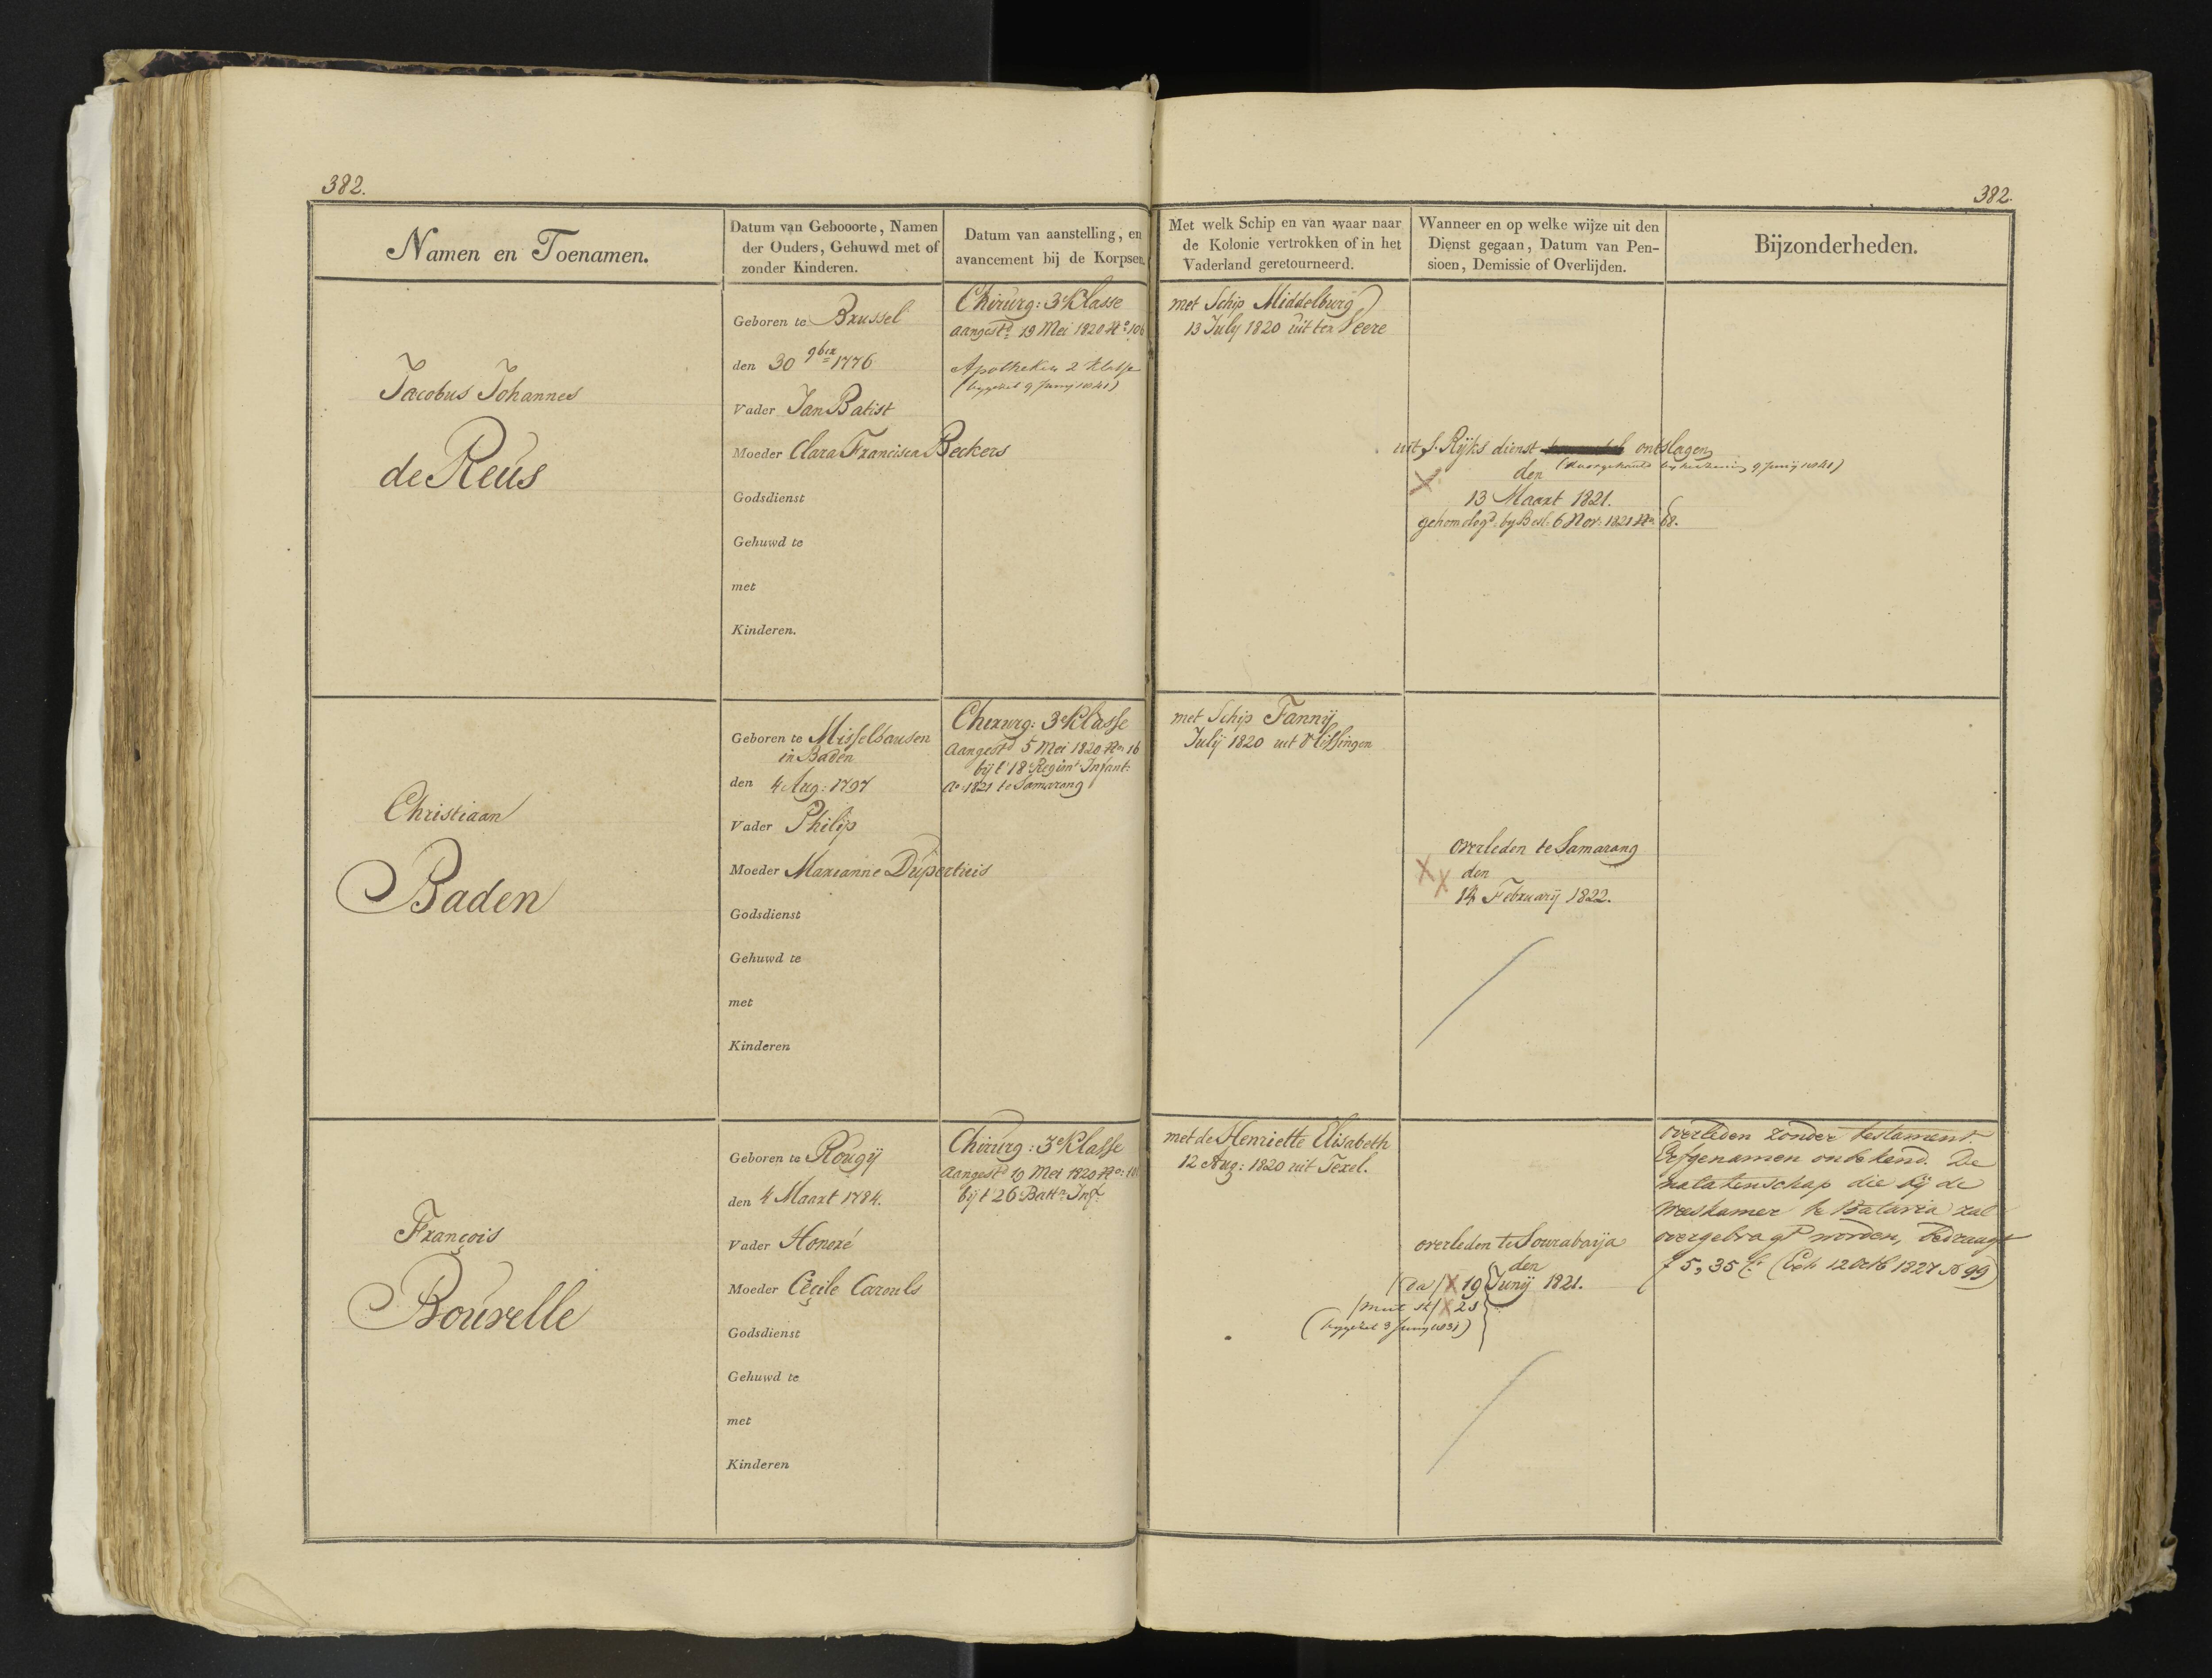 382.
382.
Namen en Toenamen.
Datum van Gebooorte, Namen
der Ouders, Gehuwd met of
zonder Kinderen.
Datum van aanstelling, en
avancement bij de Korpsen.
Met welk Schip en van waar naar
de Kolonie vertrokken of in het
Vaderland geretourneerd.
Wanneer en op welke wijze uit den
Dienst gegaan, Datum van Pen-
sioen, Demissie of Overlijden.
Bijzonderheden.
Jacobus Johannes
de Reus
Geboren te Brussel
den 30 9ber 1776
Vader Jan Batist
Moeder Clara Francisca Beckers
Godsdienst
Gehuwd te
met
Kinderen.
Chirurg: 3e Klasse
aangestd 19 Mei 1820 No 106
Apotheker 2 Klasse
9 Junij 1841)
met Schip Middelburg
13 July 1820 uit ter Veere
uit s. Rijks dienst ontslagen
(doorgehaald 9 Junij 1841)
den
13 Maart 1821.
gehomologd. by Besl: 6 Nov: 1821 No 68.
Christiaan
Baden
Geboren te Misselhausen
in Baden
den 4 Aug: 1797
Vader Philip
Moeder Marianne Dupertuis
Godsdienst
Gehuwd te
met
Kinderen
Cherurg: 3e Klasse
Aangestd 5 Mei 1820 No 16
bij t 18e Regimt Infant:
Ao 1821 te Samarang
met Schip Fannij
Julij 1820 uit Vlissingen
overleden te Samarang
den
14 Februarij 1822.
François
Bourelle
Geboren te Rougij
den 4 Maart 1784.
Vader Honoré
Moeder Cecile
Godsdienst
Gehuwd te
met
Kinderen
Chirurg: 3e Klasse
Aangestd 19 Mei 1820 No:
bij t 26e Battn Inf
met de Henriette Elisabeth
12 Aug: 1820 uit Texel.
overleden te Sourabaija
den
19 Junij 1821.
23
3 Junij
overleden zonder testament.
Erfgenamen onbekend. De
nalatenschap die bij de
Weeskamer te Batavia zal
overgebragt worden, bedraagt
f 5,35 12 Octb 1827 No 99)